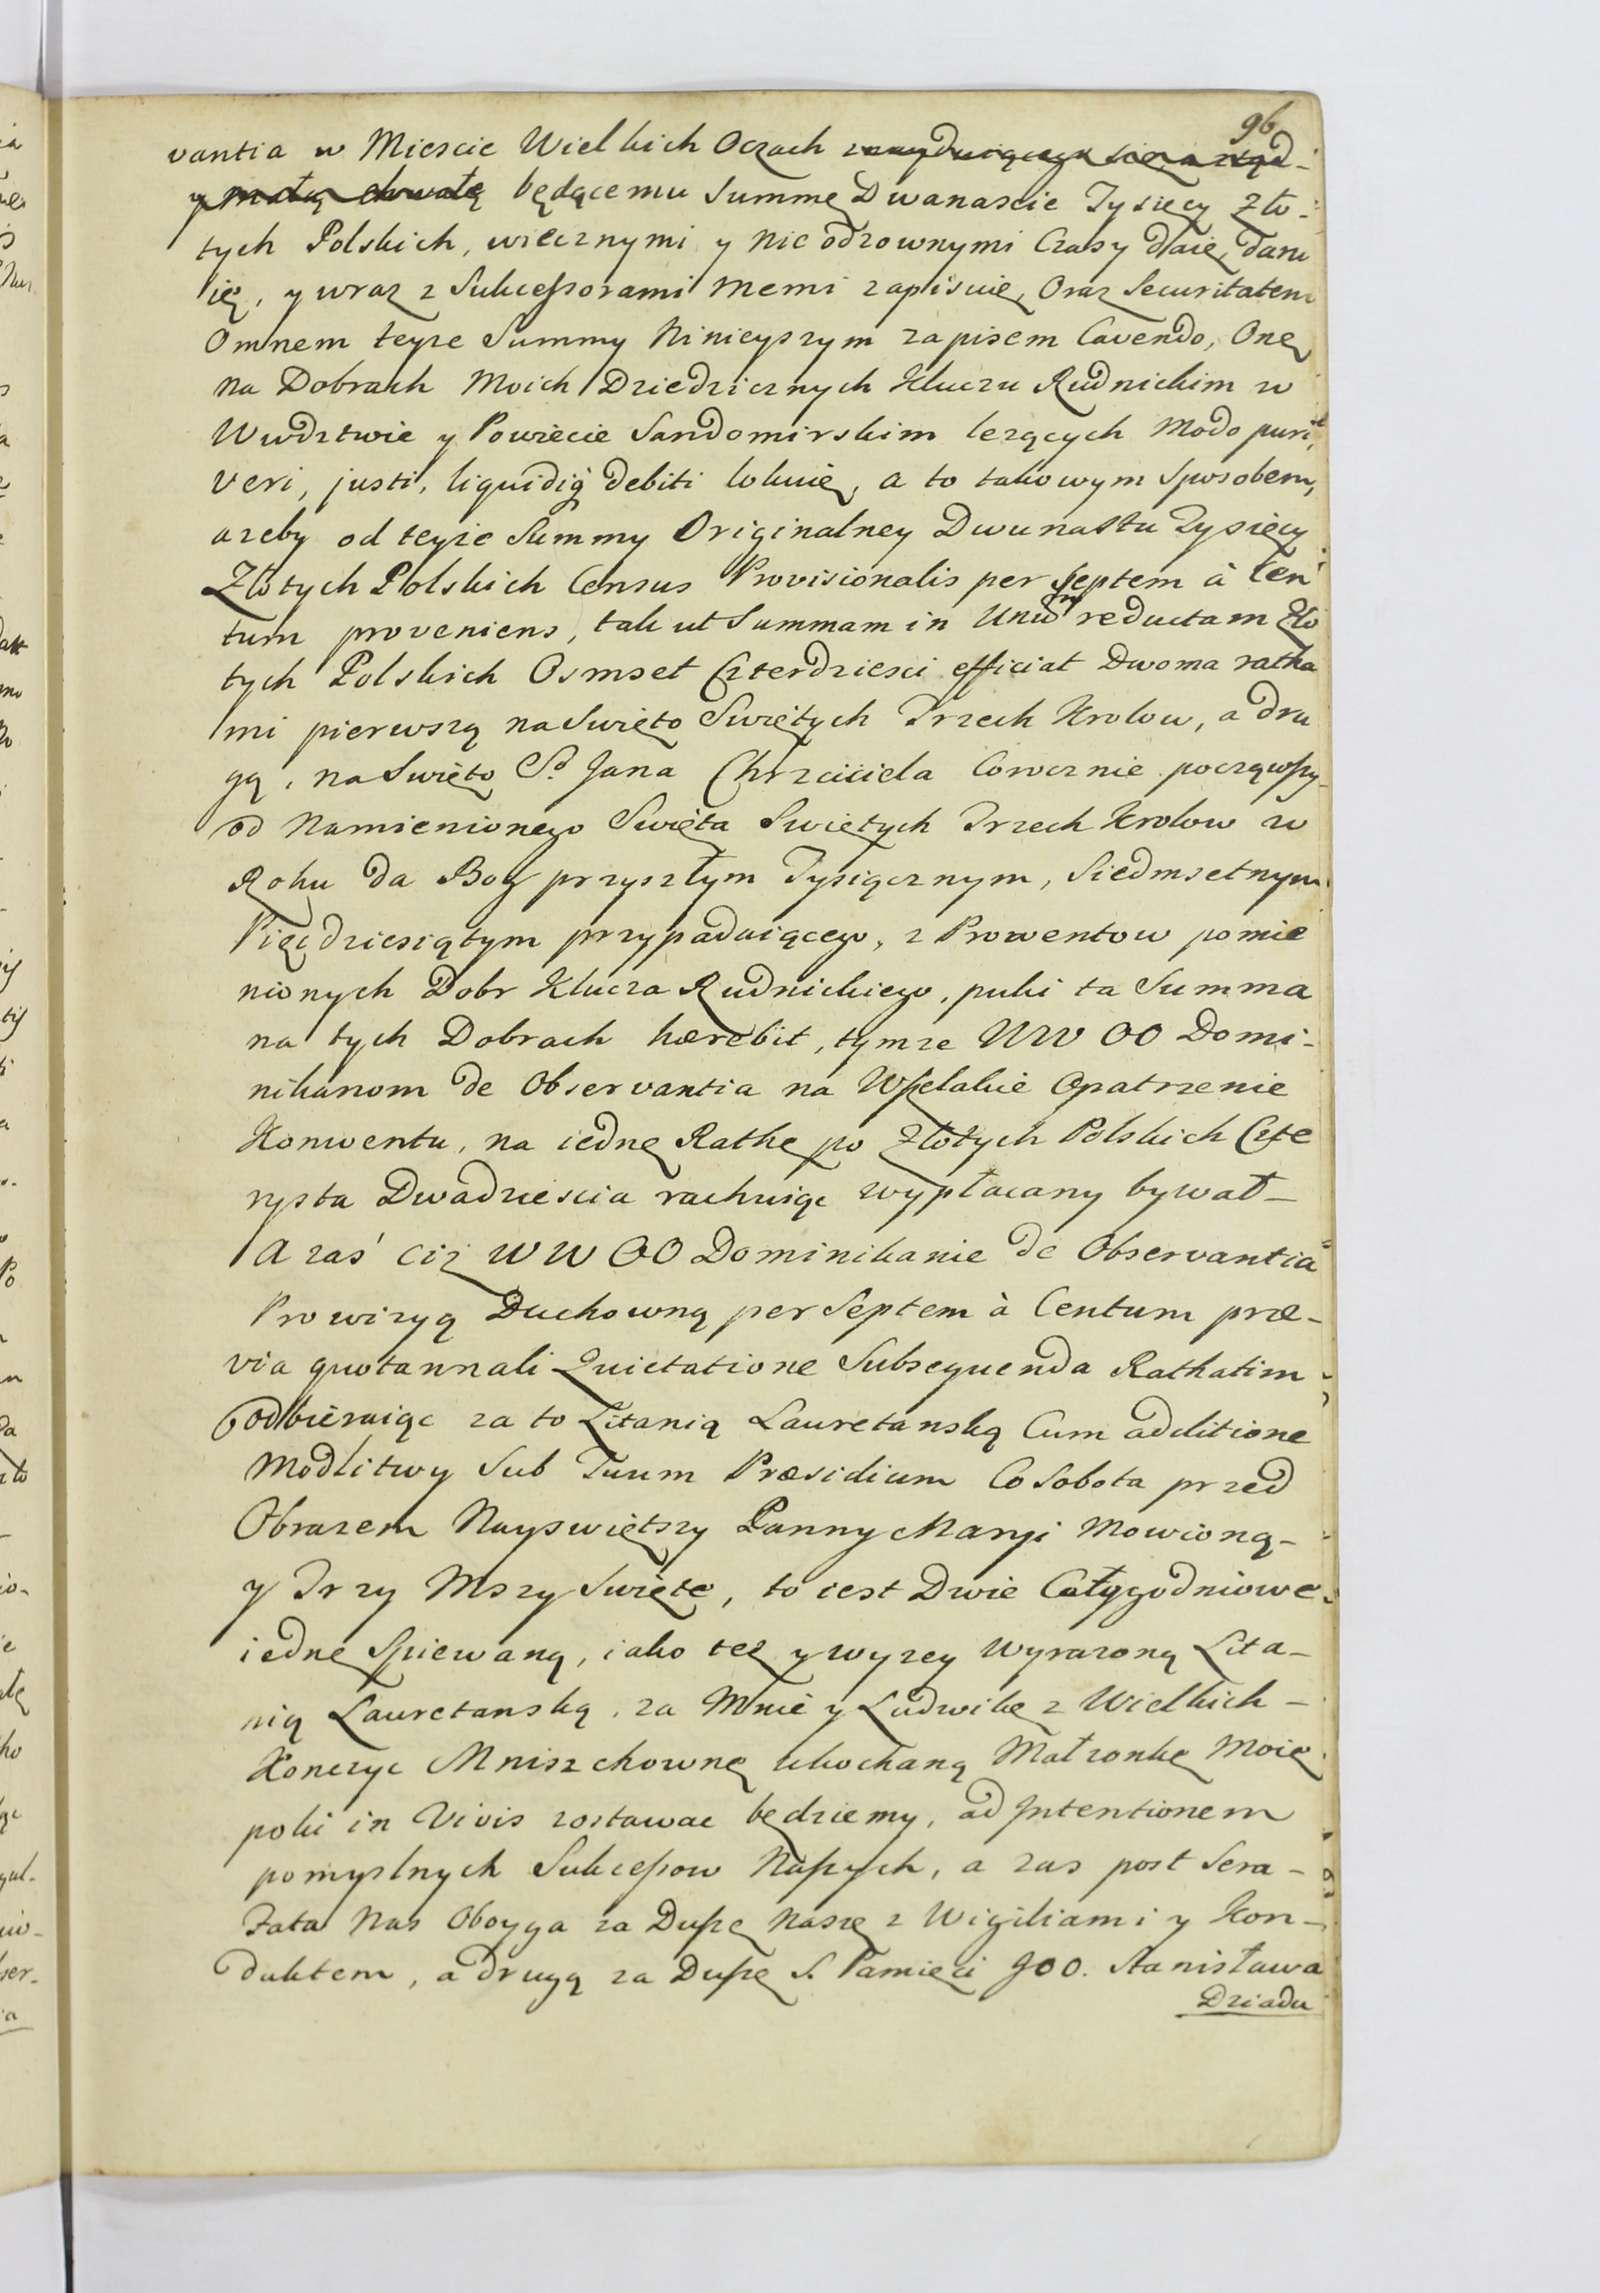 96
vantia w Miescie Wielkich Oczach
będącemu Summę Dwanascie Tysięcy Zło-
tych Polskich, wiecznymi y nieodzownymi Czasy daię, daru
ię, y wraz z Sukcessorami memi zapisuię, Oraz Securitatem
Omnem teyze Summy Ninieyszym zapisem Cavendo, Onę
na Dobrach Moich Dziedzicznych Kluczu Rudnickim w
Wwdztwie y Powiecie Sandomirskim lezących Modo puri,
veri, justi, liquidiq debiti lokuię, a to takowym Sposobem,
azeby od teyze Summy Originalney Dwunastu Tysięcy
Złotych Polskich Census Provisionalis per Septem à Cen
tum proveniens, tak ut Summam in Unum reductam Zło
tych Polskich Osmset Czterdziesci efficiat Dwoma ratha
mi pierwszą na Swięto Swiętych Trzech Krolow, a dru
gą, na Swięto Sº Jana Chrzciciela Corocznie począwszy
od Namienionego Swięta Swiętych Trzech Krolow w
Roku da Bog przyszłym Tysiącznym, Siedmsetnym
Pięćdziesiątym przypaduiącego, z Prowentow pomie
nionych Dobr Klucza Rudnickiego, puki ta Summa
na tych Dobrach hærebit, tymze WW OO Domi-
nikanom de Observantia na Wszelakie Opatrzenie
Konwentu, na iednę Rathę po Złotych Polskich Czte
rysta Dwadziescia rachuiąc wypłacany bywał_
A zaś ciz WW OO Dominikanie de Observantia
Prowizyą Duchowną per Septem à Centum præ-
via quotannali Quietatione Subsequenda Rathatim
odbieraiąc za to Litanią Lauretanską Cum additione
Modlitwy Sub Tuum Præsidium Co Sobota przed
Obrazem Nayswiętszy Panny Maryi Mowioną_
y Trzy Mszy Swięte, to iest Dwie Całygodniowe
iednę Spiewaną, iako tez y wyzey wyrazoną Lita-
nią Lauretanską, za Mnie y Ludwikę z Wielkich_
Konczyc Mniszchownę ukochaną Małzonkę Moię
poki in Vivis zostawac będziemy, ad Intentionem
pomyslnych Sukcessow Naszych, a zas post Sera_
Fata Nas Oboyga za Duszę Naszę z Wigiliami y Kon-
duktem, a drugą za Duszę S. Pamięci JOO. Stanisława
Dziadu